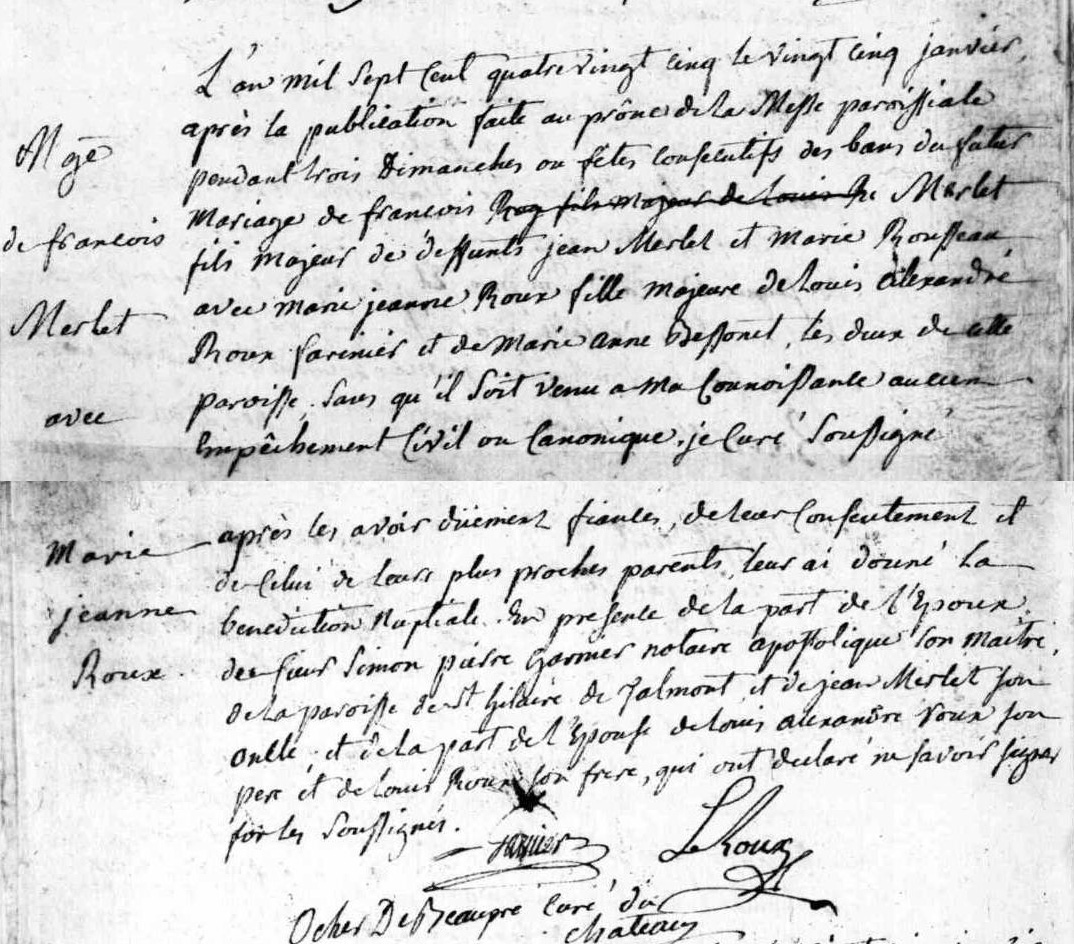 L'an mil sept cent quatre vingt cinq le vingt cinq janvier,
après la publication faite au prône de la Messe paroissiale
Mge pendant trois Dimanches ou fêtes consecutifs des bans du futur
Mariage de francois Roy fils majeur de Louis R Merlet
de francois fils majeur de deffunts jean Merlet et marie Rousseau
avec marie jeanne Roux fille majeure de Louis alexandre
Merlet Roux farinier et de Marie anne Bessonet, les deux de cette
paroisse. sans qu'il soit venu a ma connoissance aucun
avec Empêchement Civil ou Canonique. je Curé soussigné
Marie après les avoir düement fiancés, de leur consentement et
de celui de leurs plus proches parents, leur ai donné la
jeanne benediction Nuptiale. En presence de la part de l'Epoux
Roux. des sieur Simon pierre Garnier notaire apostolique son maitre,
de la paroisse de st hilaire de Talmont et de jean Merlet son
oncle, et de la part de l'Epouse de Louis alexandre Roux son
pere et de Louis Roux son frere, qui ont declaré ne savoir signer
for les soussignés.
Garnier LeRoux
Ocher DeBeaupré Curé du
chateau